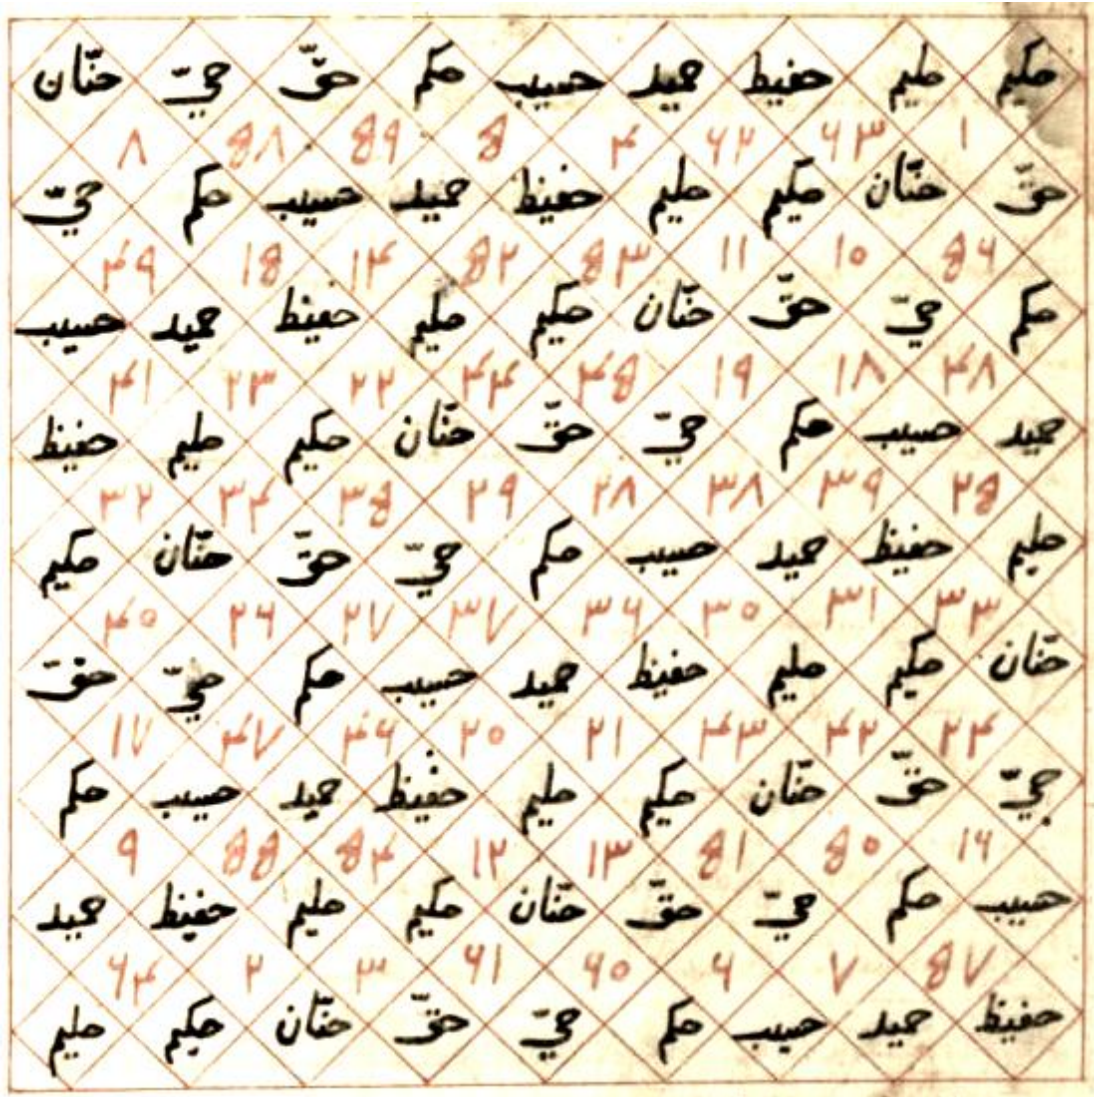 حكيم حليم حفيظ حميد حسيب حكم حقّ حيّ حنّان
١ ٦٣ ٦٢ ٤ ٥ ٥٩ ٥٨ ٨
حقّ حنّان حكيم حليم حفيظ حميد حسيب حكم حيّ
٥٦ ١٠ ١١ ٥٣ ٥٢ ١٤ ١٥ ٤٩
حكم حيّ حقّ حنّان حكيم حليم حفيظ حميد حسيب
٤٨ ١٨ ١٩ ٤٥ ٤٤ ٢٢ ٢٣ ٤١
حميد حسيب حكم حيّ حقّ حنّان حكيم حليم حفيظ
٢٥ ٣٩ ٣٨ ٢٨ ٢٩ ٣٥ ٣٤ ٣٢
حليم حفيظ حميد حسيب حكم حيّ حقّ حنّان حكيم
٣٣ ٣١ ٣٠ ٣٦ ٣٧ ٢٧ ٢٦ ٤٠
حنّان حكيم حليم حفيظ حميد حسيب حكم حيّ حقّ
٢٤ ٤٢ ٤٣ ٢١ ٢٠ ٤٦ ٤٧ ١٧
حيّ حقّ حنّان حكيم حليم حفيظ حميد حسيب حكم
١٦ ٥٠ ٥١ ١٣ ١٢ ٥٤ ٥٥ ٩
حسيب حكم حيّ حقّ حنّان حكيم حليم حفيظ حميد
٥٧ ٧ ٦ ٦٠ ٦١ ٣ ٢ ٦٤
حفيظ حميد حسيب حكم حيّ حقّ حنّان حكيم حليم